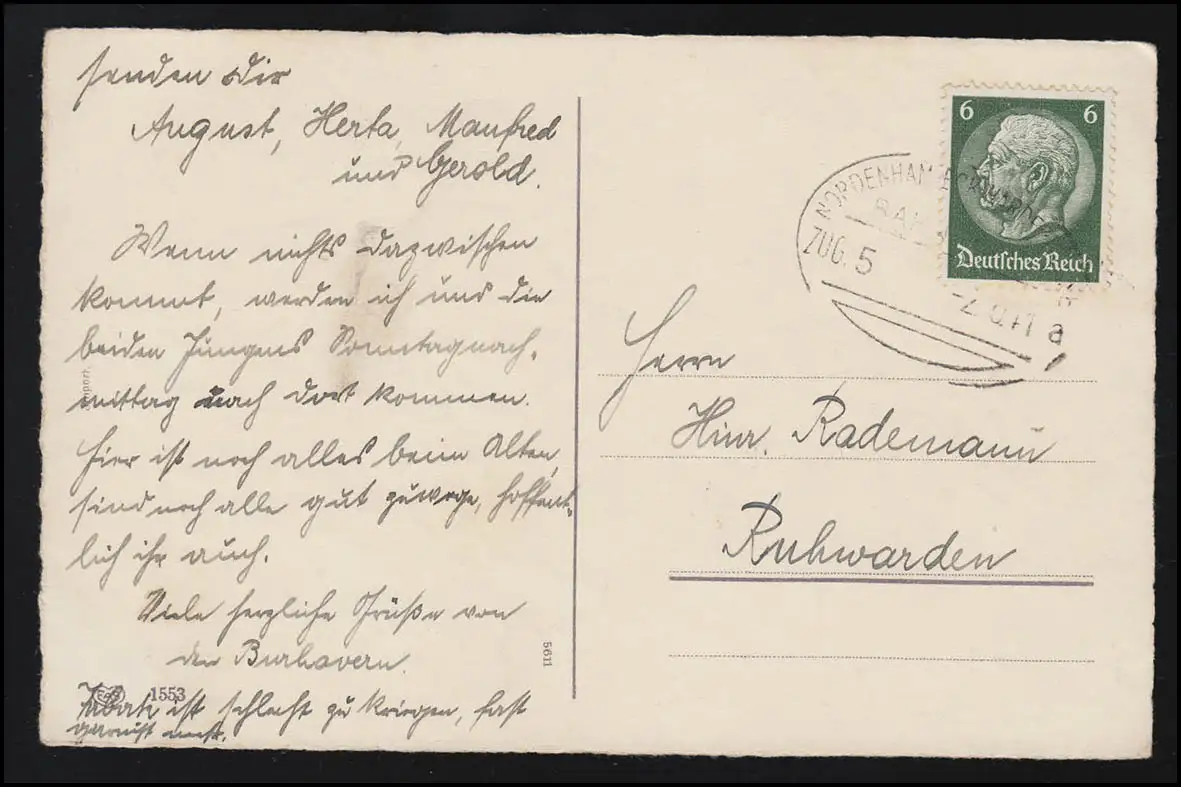 senden Dir
August, Herta, Manfred
und Gerold.
Wenn nichts dazwischen
kommt, werden ich und die
beiden Jungens Sonntagnach-
mittag nach dort kommen.
Hier ist noch alles beim Alten,
sind noch alle gut zuwege, hoffent-
lich ihr auch.
Viele herzliche Grüße von
den Burhavern.
Tabak ist schlecht zu kriegen, fast
garnicht mehr.
1553
5611
6 6
Deutsches Reich
NORDENHAM
ZUG 5
a
Herrn
Hinr. Rademann
Ruhwarden